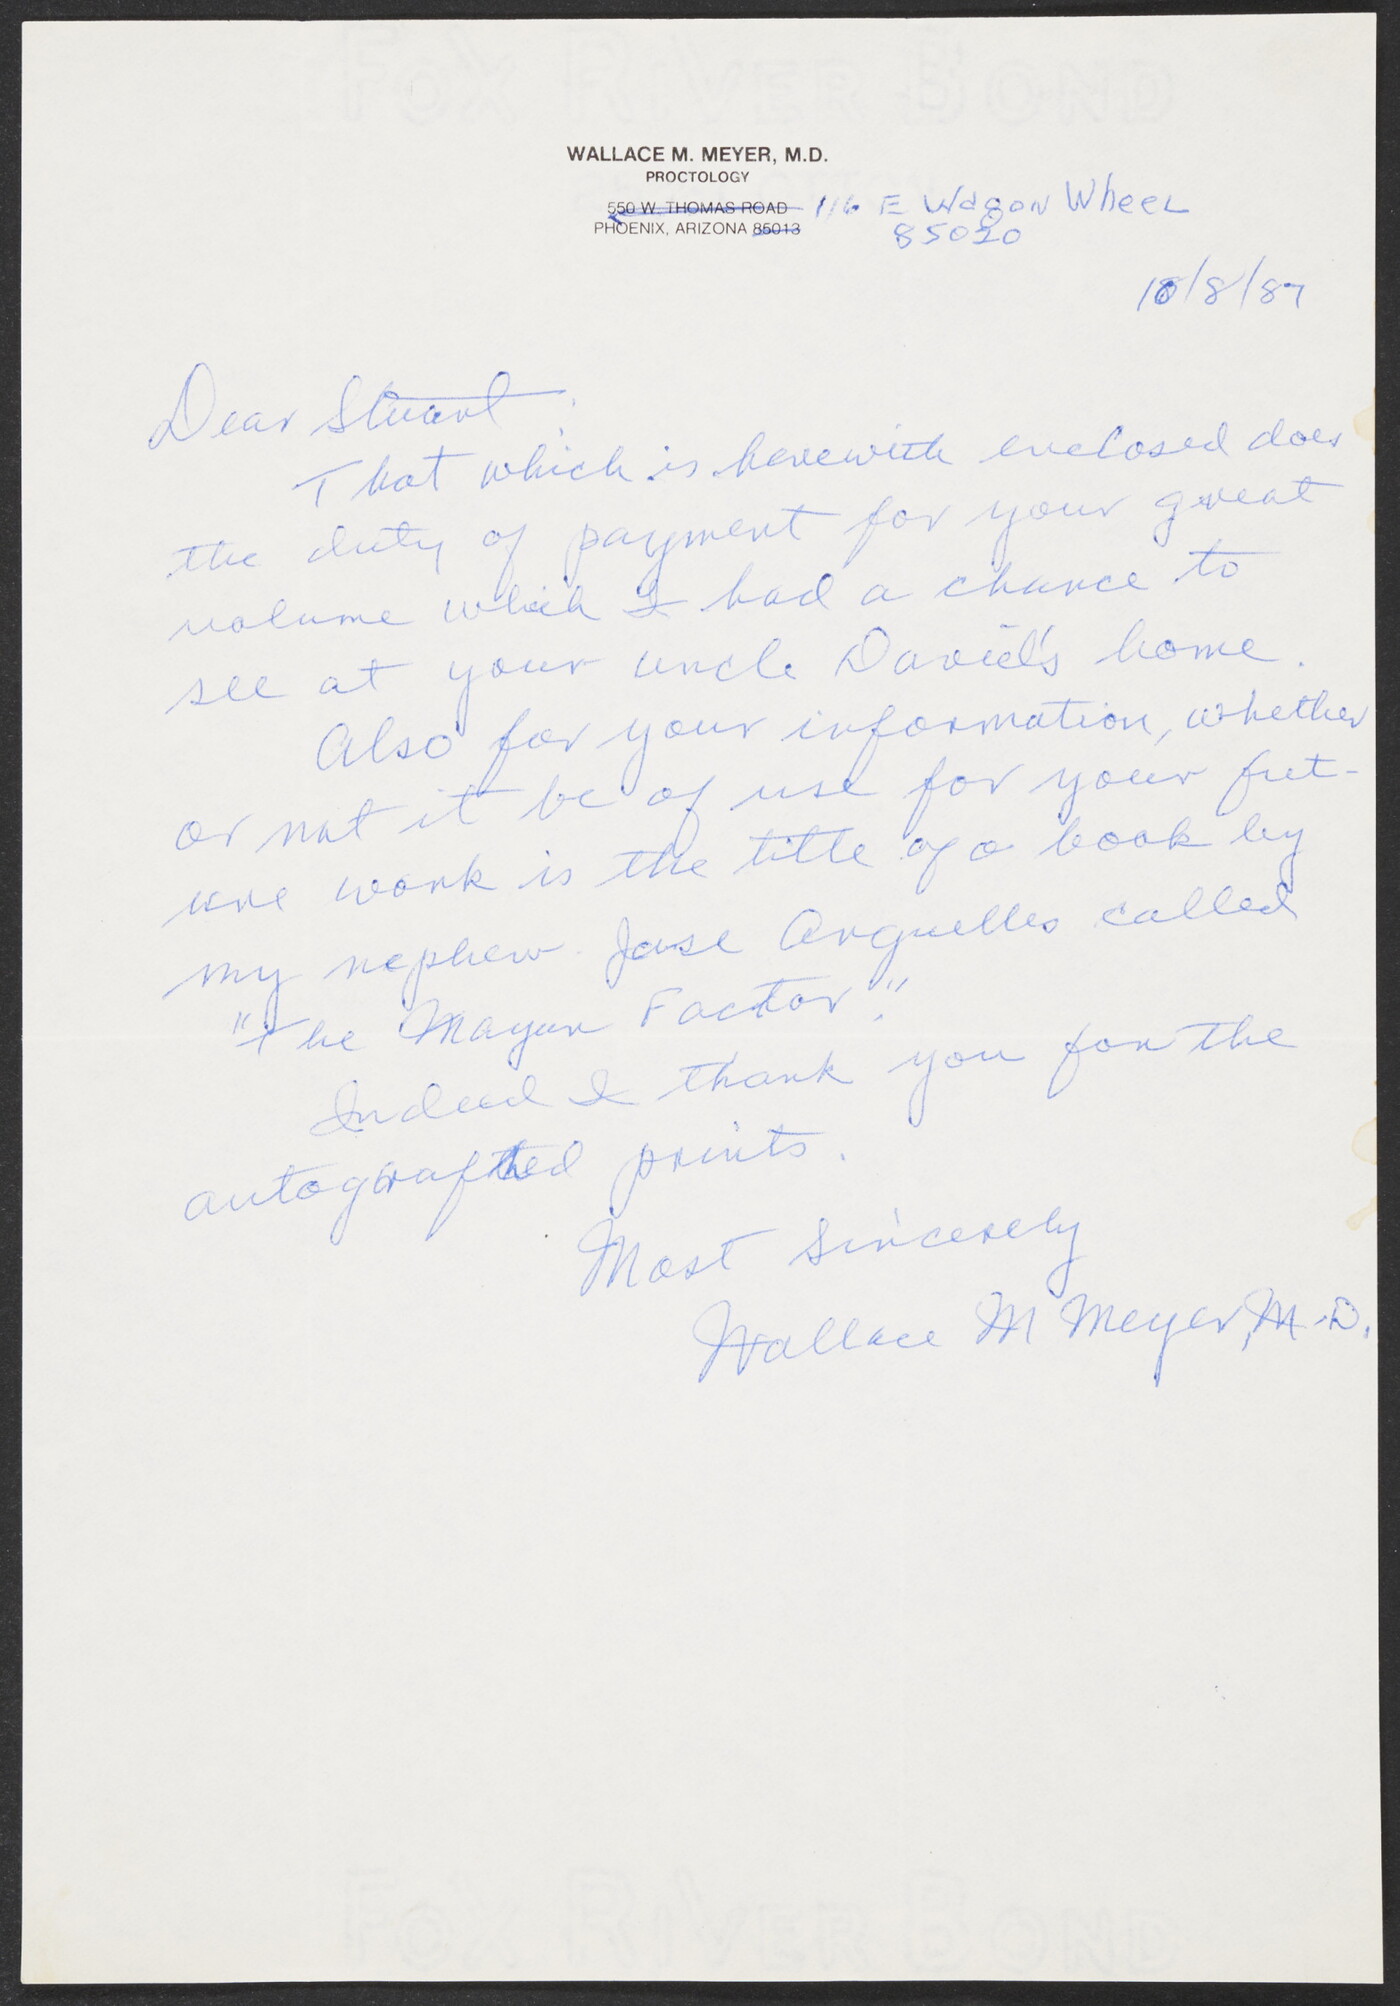 FOX RIVER BOND
WALLACE M. MEYER, M.D.
PROCTOLOGY
550 W. THOMAS ROAD 116 E Wagon Wheel
PHOENIX, ARIZONA 85013 85020
10/8/87
Dear Stuart,
That which is herewith enclosed does
the duty of payment for your great
volume which I had a chance to
see at your uncle David's home.
Also for your information, whether
or not it be of use for your fut-
ure work is the title of a book by
my nephew Jose Arguelles called
"The Mayan Factor".
Indeed I thank you for the
autografhed prints.
Most Sincerely
Wallace M Meyer, M.D.
FOX RIVER BOND